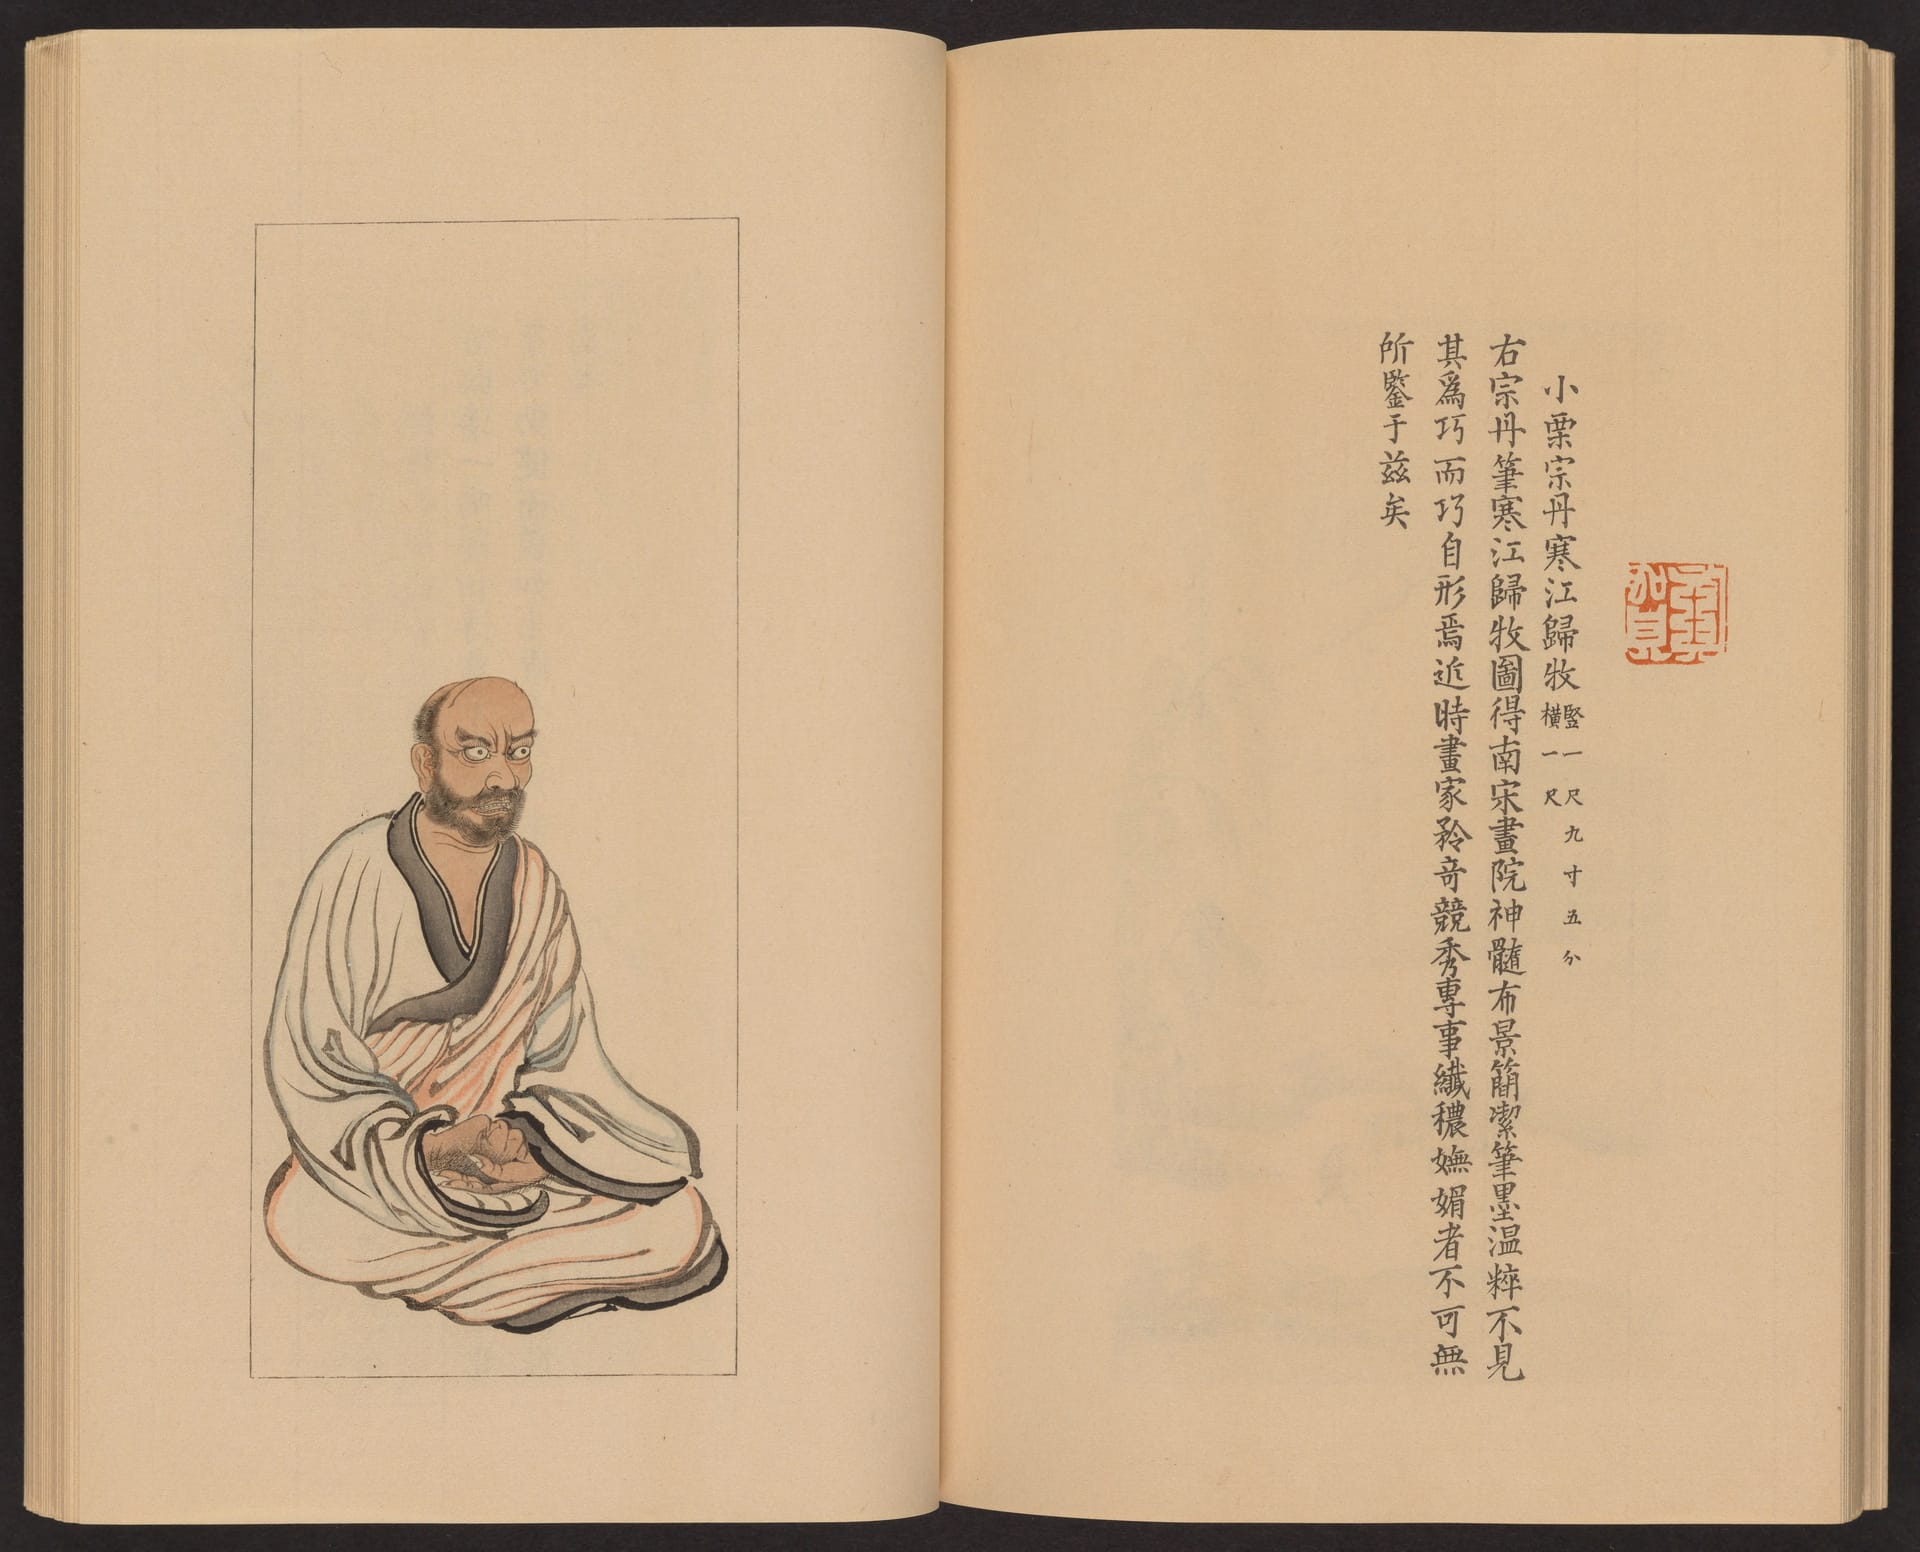 小栗宗丹寒江歸牧 竪一尺九寸五分
横一尺
右宗丹筆寒江歸牧圖得南宋畫院神髓布景簡潔筆墨温粹不見
其爲巧而巧自形焉近時畫家矜奇競秀專事纖穠嫵媚者不可無
所鑒于茲矣